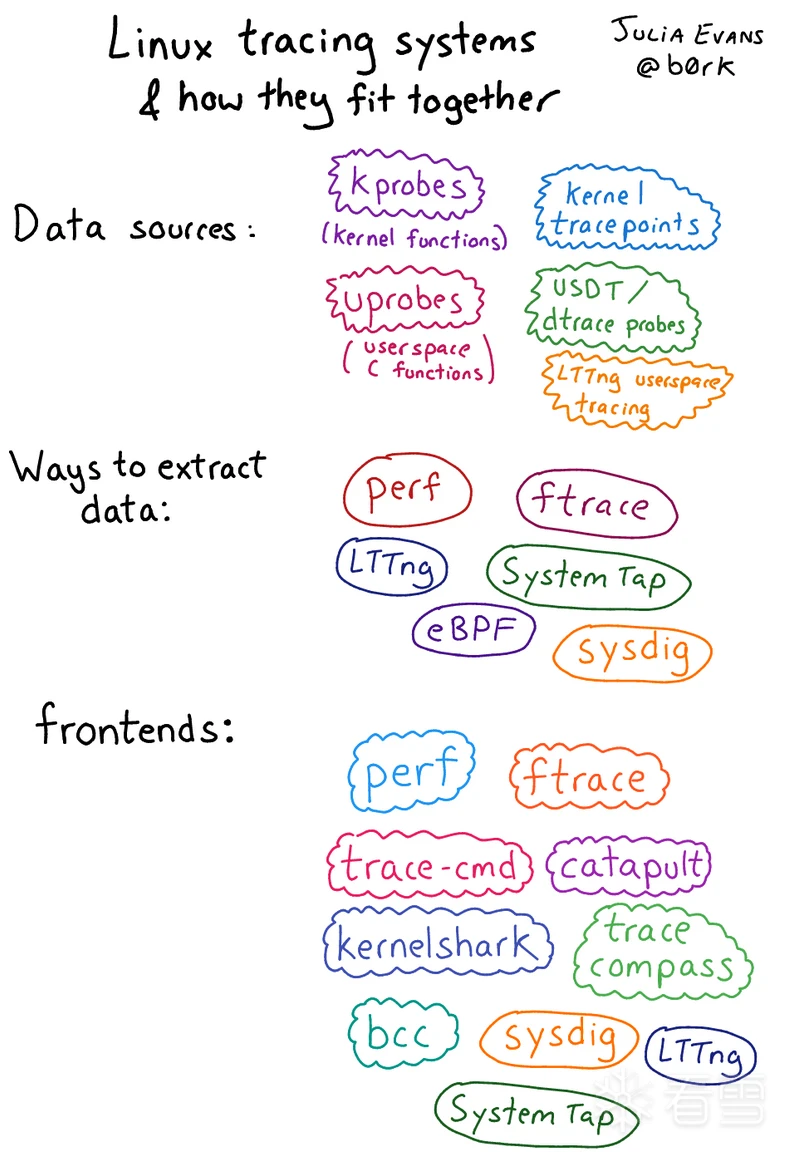 Linux tracing systems
& how they fit together
JULIA EVANS
@b0rk
Data sources:
kprobes
(kernel functions)
kernel
tracepoints
uprobes
(userspace
C functions)
USDT/
dtrace probes
LTTng userspace
tracing
Ways to extract
data:
perf
ftrace
LTTng
SystemTap
eBPF
sysdig
frontends:
perf
ftrace
trace-cmd
catapult
kernelshark
trace
compass
bcc
sysdig
LTTng
SystemTap
看雪